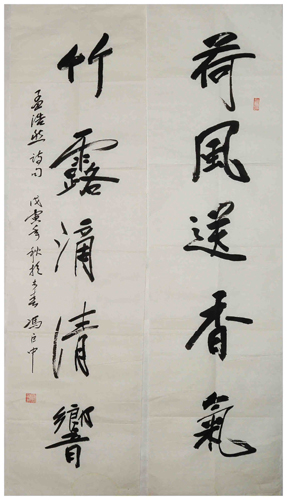 荷風送香氣
竹露滴清響
孟浩然詩句 戊寅年秋於長春 馮正中